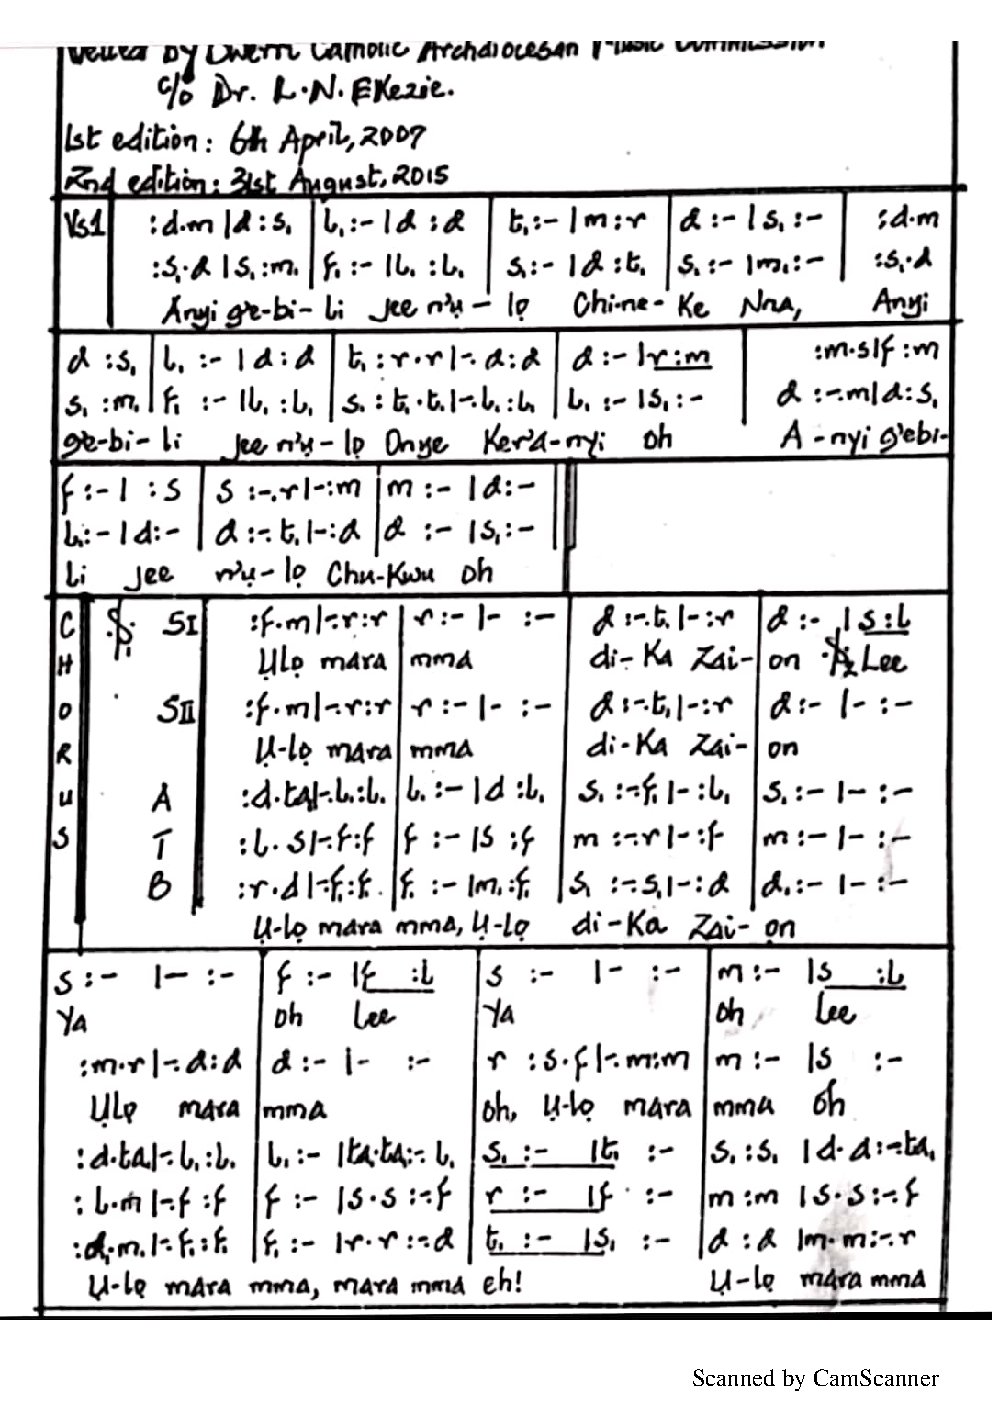 Vetted by Owerri Catholic Archdiocesan Music Commission
c/o Dr. L.N. Ekezie.
1st edition: 6th April, 2007
2nd edition: 31st August, 2015
Vs1 :d.m |d :s, | l, :- |d :d | t, :- |m :r | d :- |s, :- | :d.m
:s,.d |s, :m, | f, :- |l, :l, | s, :- |d :t, | s, :- |m, :- | :s,.d
Anyi ga-ebi-li jee n'ụ-lọ Chi-ne-Ke Nna, Anyi
d :s, | l, :- |d :d | t, :r.r |-.d :d | d :- |r :m | :m.s |f :m
s, :m, | f, :- |l, :l, | s, :t,.t, |-.l, :l, | l, :- |s, :- | d :-.m |d :s,
ge-bi-li jee n'ụ-lọ Onye Ker'a-nyi oh A-nyi g'ebi-
f :- | :s | s :-.r |- :m | m :- |d :-
l, :- |d :- | d :-.t, |- :d | d :- |s, :-
li jee n'ụ-lọ Chu-Kwu oh
CHORUS
SI :f.m |-.r :r | r :- |- :- | d :-.t, |- :r | d :- |s :l
Ụlọ mara mma di-Ka Zai-on Lee
SII :f.m |-.r :r | r :- |- :- | d :-.t, |- :r | d :- |- :-
Ụ-lọ mara mma di-Ka Zai-on
A :d.ta, |-.l, :l, | l, :- |d :l, | s, :-.f, |- :l, | s, :- |- :-
T :l.s |-.f :f | f :- |s :f | m :-.r |- :f | m :- |- :-
B :r.d |-.f, :f, | f, :- |m, :f, | s, :-.s, |- :d | d, :- |- :-
Ụ-lọ mara mma, Ụ-lọ di-Ka Zai-on
s :- |- :- | f :- |f :l | s :- |- :- | m :- |s :l
Ya oh Lee Ya oh Lee
:m.r |-.d :d | d :- |- :- | r :s.f |-.m :m | m :- |s :-
Ụlọ mara mma oh, Ụ-lọ mara mma oh
:d.ta, |-.l, :l, | l, :- |ta,.ta, :-.l, | s, :- |t, :- | s, :s, |d.d :-.ta,
:l.m |-.f :f | f :- |s.s :-.f | r :- |f :- | m :m |s.s :-.f
:d,.m, |-.f, :f, | f, :- |r.r :-.d | t, :- |s, :- | d :d |m.m :-.r
Ụ-lọ mara mma, mara mma eh! Ụ-lọ mara mma
Scanned by CamScanner